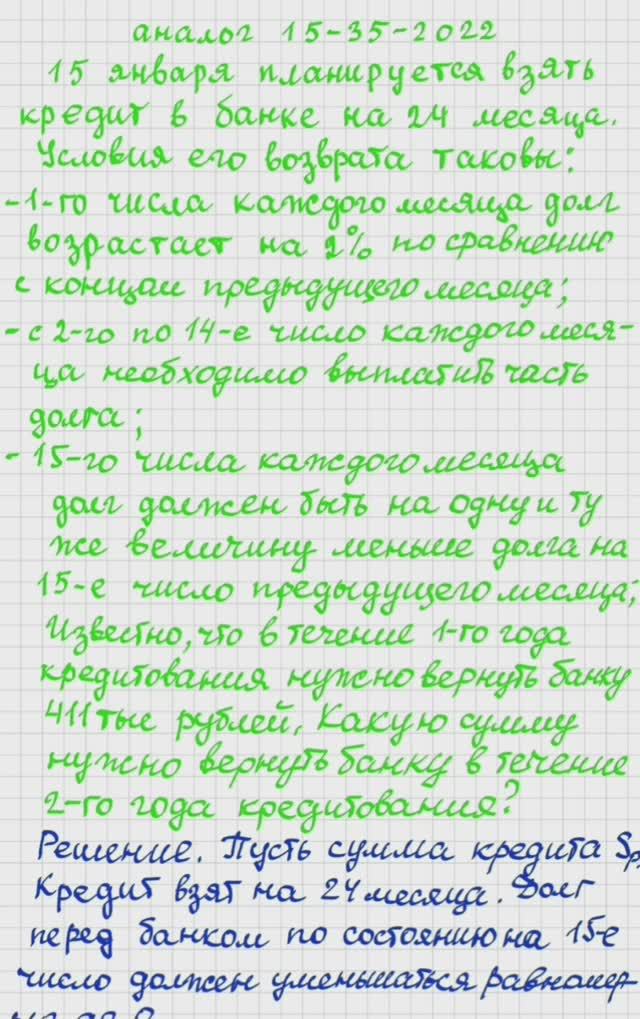 аналог 15-35-2022
15 января планируется взять
кредит в банке на 24 месяца.
Условия его возврата таковы:
-1-го числа каждого месяца долг
возрастает на 2% по сравнению
с концом предыдущего месяца;
- с 2-го по 14-е число каждого меся-
ца необходимо выплатить часть
долга;
- 15-го числа каждого месяца
долг должен быть на одну и ту
же величину меньше долга на
15-е число предыдущего месяца;
Известно, что в течение 1-го года
кредитования нужно вернуть банку
411 тыс рублей. Какую сумму
нужно вернуть банку в течение
2-го года кредитования?
Решение. Пусть сумма кредита Sр,
Кредит взят на 24 месяца. Долг
перед банком по состоянию на 15-е
число должен уменьшаться равномер-